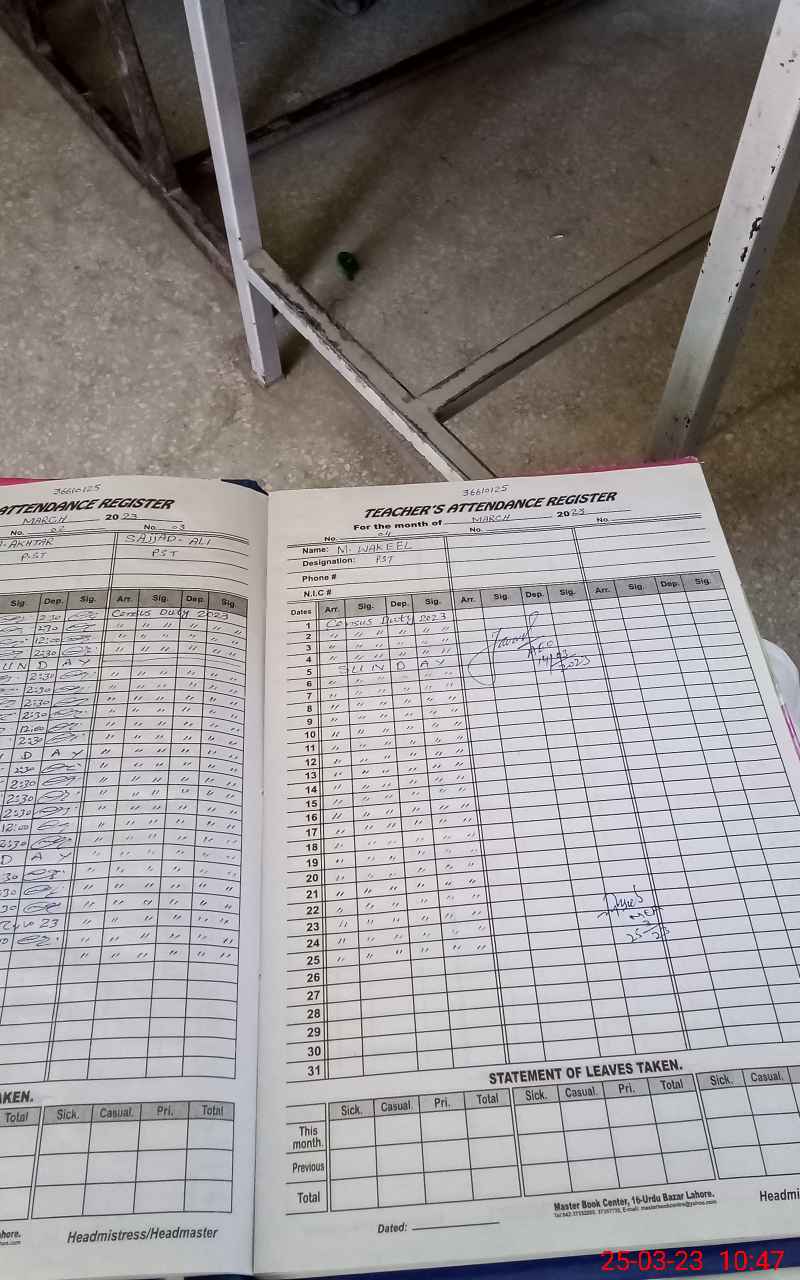 36610125
ATTENDANCE REGISTER
MARCH 2023
No. 02 No. 03
AKHTAR SAJJAD. ALI
PST PST
Sig. Dep. Sig. Arr. Sig. Dep. Sig.
2:30 Census Duty 2023
2:30 " " " "
12:00 " " " "
2:30 " " " "
U N D A Y
2:30 " " " "
2:30 " " " "
2:30 " " " "
2:30 " " " "
12:00 " " " "
2:30 " " " "
D A Y " " " "
2:30 " " " "
2:30 " " " "
2:30 " " " "
2:30 " " " "
12:00 " " " "
2:30 " " " "
D A Y " " " "
30 " " " "
30 " " " "
30 " " " "
23 " " " "
" " " "
" " " "
AKEN.
Total Sick. Casual. Pri. Total
Headmistress/Headmaster
36610125
TEACHER'S ATTENDANCE REGISTER
For the month of MARCH 2023
No. 04 No. No.
Name: M. WAKEEL
Designation: PST
Phone #
N.I.C #
Dates Arr. Sig. Dep. Sig. Arr. Sig. Dep. Sig. Arr. Sig. Dep. Sig.
1 Census Duty 2023
2 " " " "
3 " " " "
4 " " " "
5 S U N D A Y
6 " " " "
7 " " " "
8 " " " "
9 " " " "
10 " " " "
11 " " " "
12 " " " "
13 " " " "
14 " " " "
15 " " " "
16 " " " "
17 " " " "
18 " " " "
19 " " " "
20 " " " "
21 " " " "
22 " " " "
23 " " " "
24 " " " "
25 " " " "
26
27
28
29
30
31
AEO
14/03/2023
25/3/23
STATEMENT OF LEAVES TAKEN.
Sick. Casual. Pri. Total Sick. Casual. Pri. Total Sick. Casual.
This month.
Previous
Total
Master Book Center, 16-Urdu Bazar Lahore.
Dated:
Headmi
25-03-23 10:47